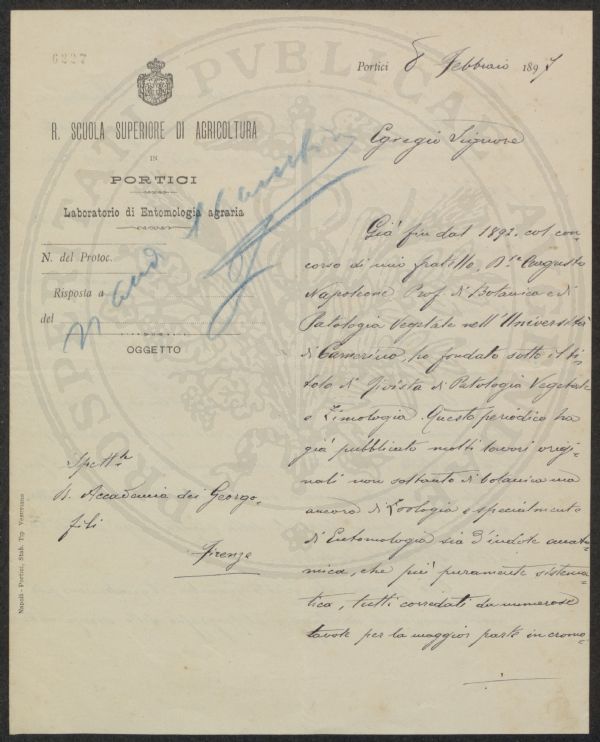 6227
Portici 8 Febbraio 1897
R. SCUOLA SUPERIORE DI AGRICOLTURA
IN
PORTICI
Laboratorio di Entomologia agraria
N. del Protoc.
Risposta a
del
OGGETTO
Egregio Signore
Già fin dal 1892. col con-
corso di mio fratello, D.re Augusto
Napoleone Prof. di Botanica e di
Patologia Vegetale nell'Università
di Camerino, ho fondato sotto il ti-
tolo di Rivista di Patologia Vegetale
e Zimologia. Questo periodico ha
già pubblicato molti lavori origi-
nali non soltanto di botanica ma
ancora di Zoologia e specialmente
di Entomologia sia d'indole anato-
mica, che più puramente sistema-
tica, tutti corredati da numerose
tavole per la maggior parte in cromo-
Spett.le
R. Accademia dei Georgo-
fili
Firenze
Napoli - Portici, Stab. Tip. Vesuviano
PROSPERITATI PVBLICAE